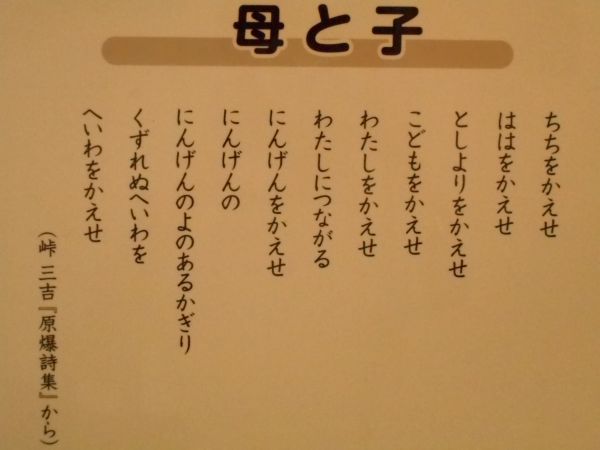 母と子
ちちをかえせ
ははをかえせ
としよりをかえせ
こどもをかえせ
わたしをかえせ
わたしにつながる
にんげんをかえせ
にんげんの
にんげんのよのあるかぎり
くずれぬへいわを
へいわをかえせ
(峠 三吉『原爆詩集』から)